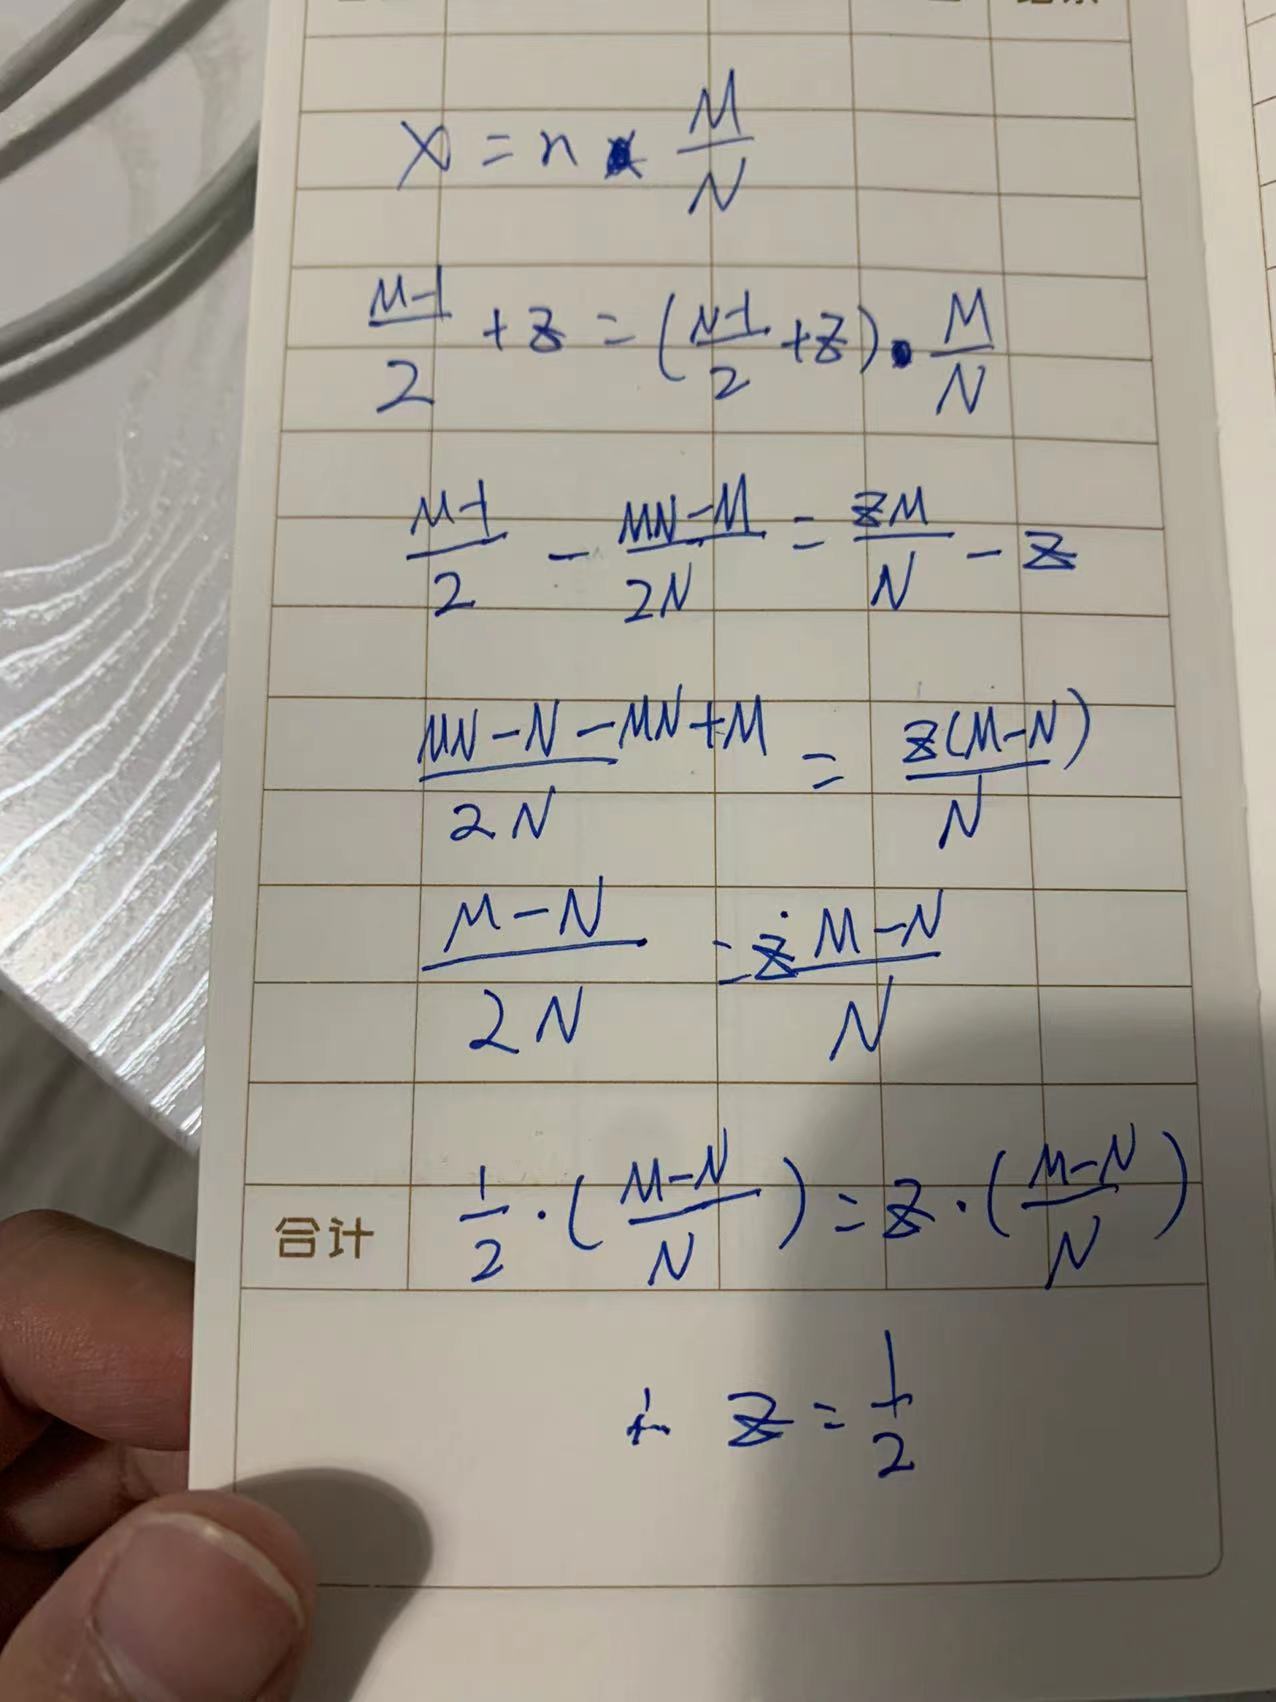 X = n · M/N
(M-1)/2 + z = ((N-1)/2 + z) · M/N
(M-1)/2 - (MN-M)/(2N) = zM/N - z
(MN-N-MN+M)/(2N) = z(M-N)/N
(M-N)/(2N) = z (M-N)/N
合计
1/2 · ((M-N)/N) = z · ((M-N)/N)
∴ z = 1/2